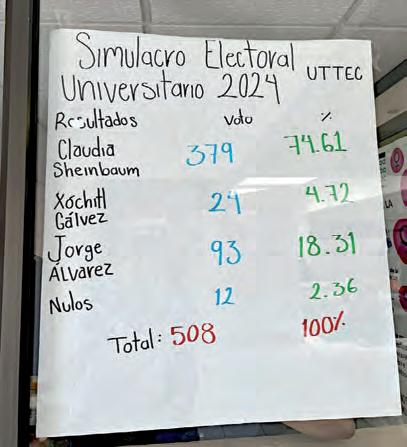 Simulacro Electoral UTTEC
Universitario 2024
Resultados Voto %
Claudia 379 74.61
Sheinbaum
Xóchitl 24 4.72
Gálvez
Jorge 93 18.31
Álvarez
Nulos 12 2.36
Total: 508 100%